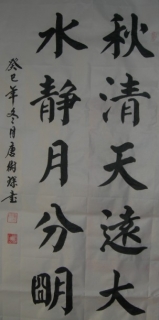 秋清天遠大
水静月分明
癸巳年冬月唐樹雄書